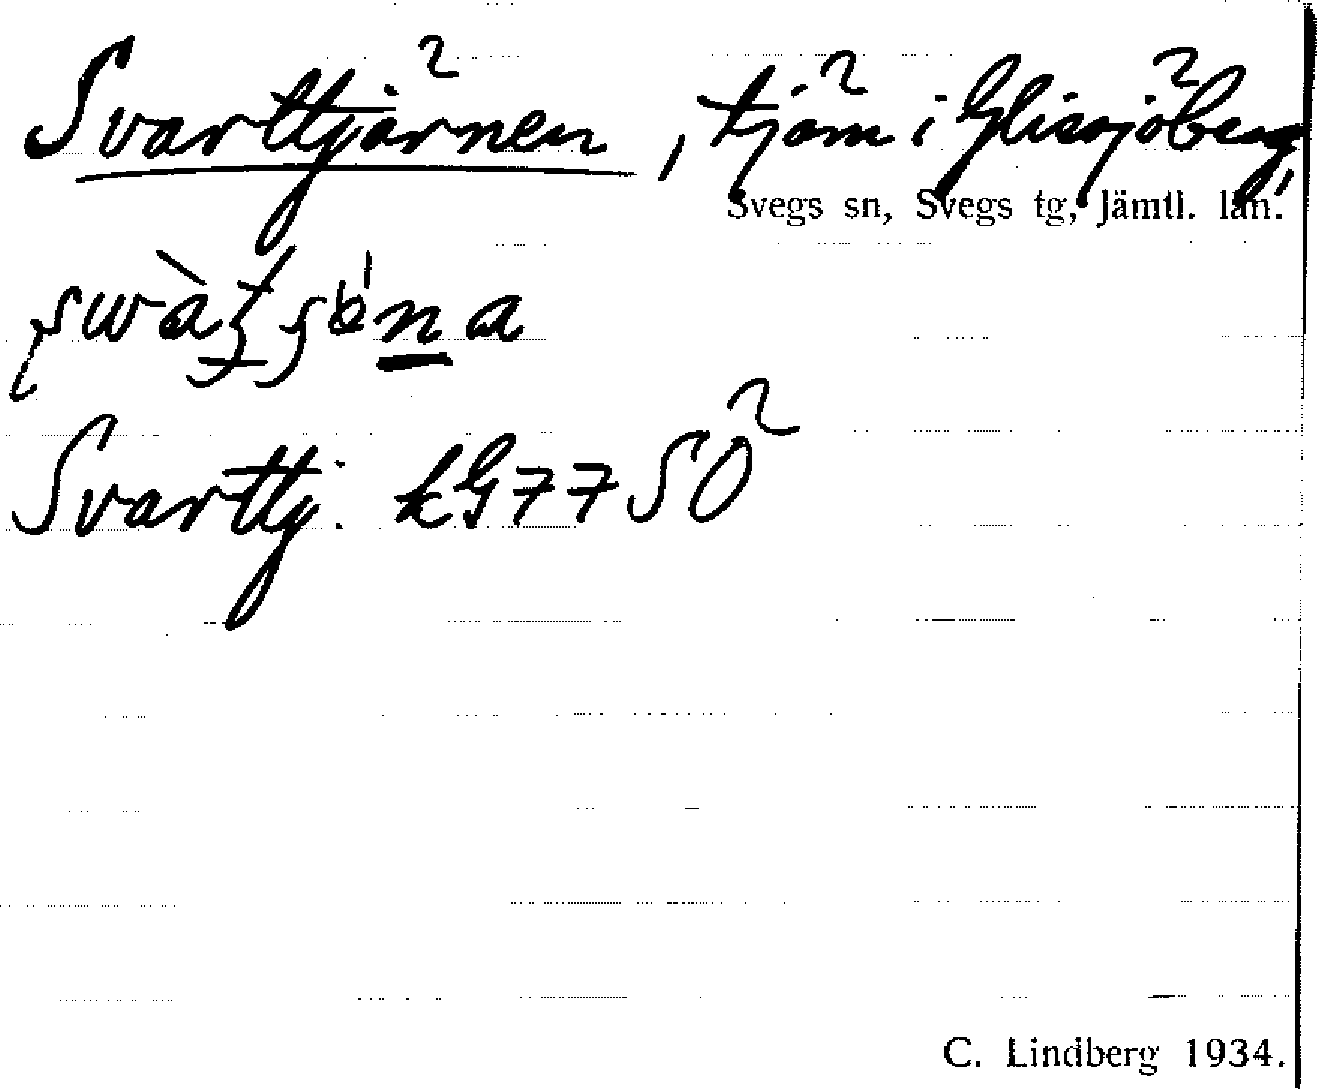 Svarttjärnen², tjärn² i Glissjöberg²,
Svegs sn, Svegs tg, Jämtl. län.
Svarttj. kG77SO²
C. Lindberg 1934.